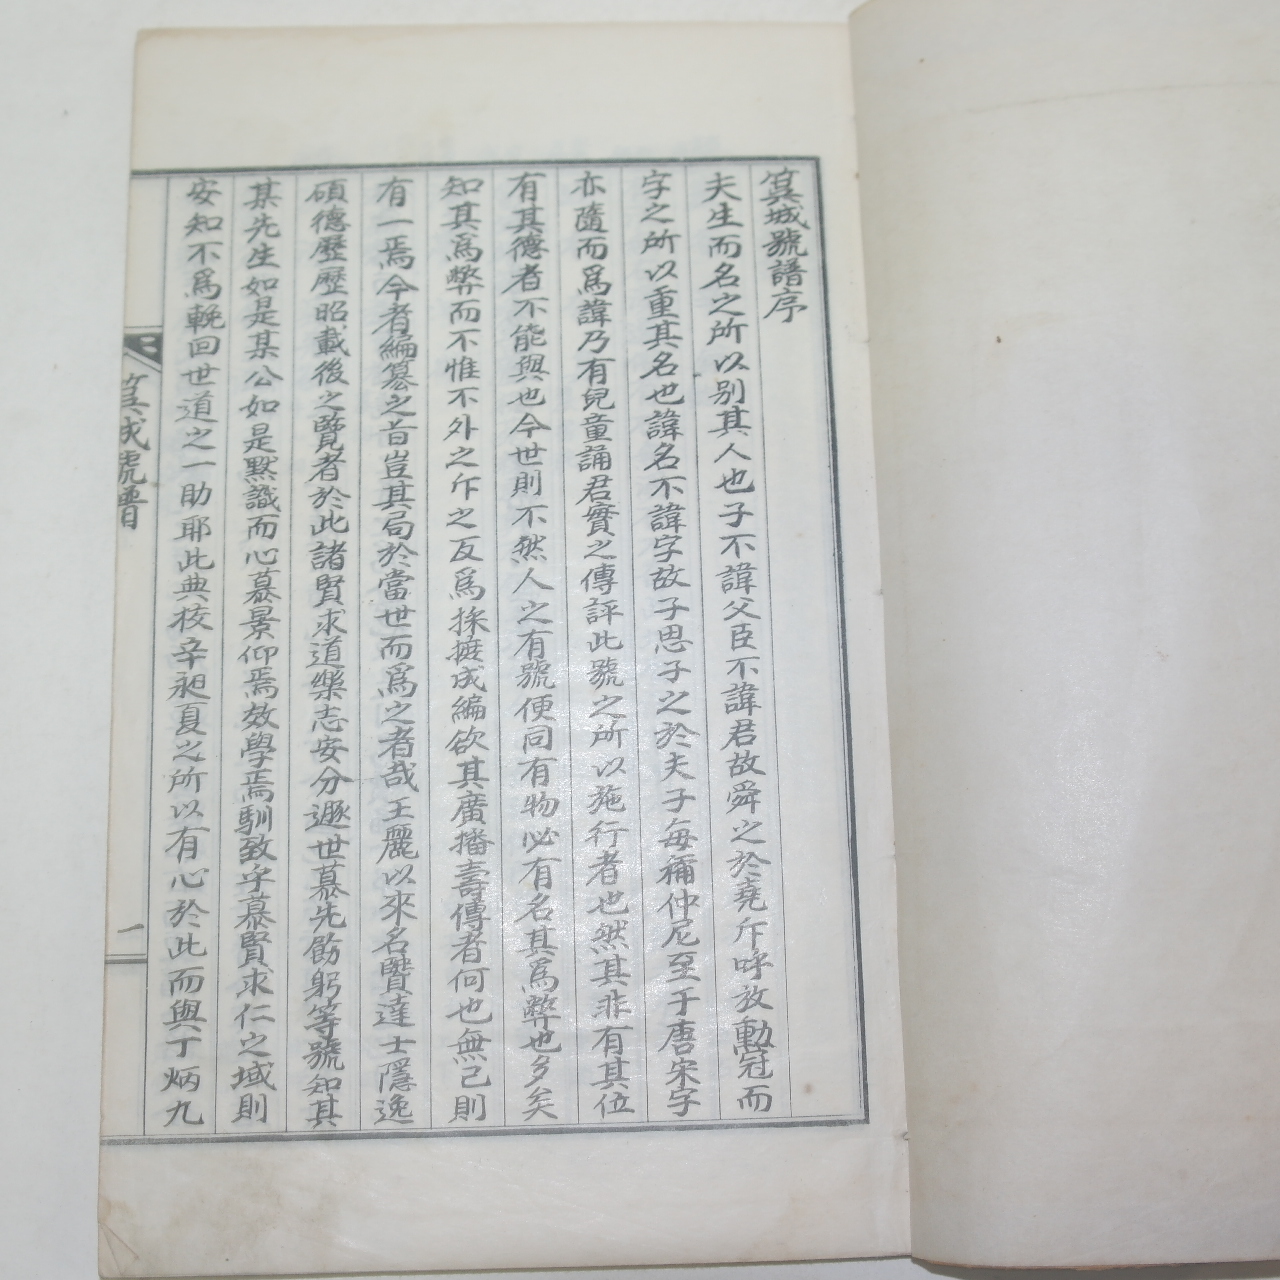 箕城號譜序
夫生而名之所以別其人也子不諱父臣不諱君故舜之於堯斥呼放勳冠而
字之所以重其名也諱名不諱字故子思子之於夫子每稱仲尼至于唐宋字
亦隨而爲諱乃有兒童誦君實之傳評此號之所以施行者也然其非有其位
有其德者不能與也今世則不然人之有號便同有物必有名其爲弊也多矣
知其爲弊而不惟不外之斥之反爲採摭成編欲其廣播壽傳者何也無己則
有一焉今者編纂之旨豈其局於當世而爲之者哉王麗以來名賢達士隱逸
碩德歷歷昭載後之覽者於此諸賢求道樂志安分遯世慕先飭躬等號知其
某先生如是某公如是默識而心慕景仰焉效學焉馴致乎慕賢求仁之域則
安知不爲輓回世道之一助耶此典校辛昶夏之所以有心於此而與丁炳九
箕城號譜
一